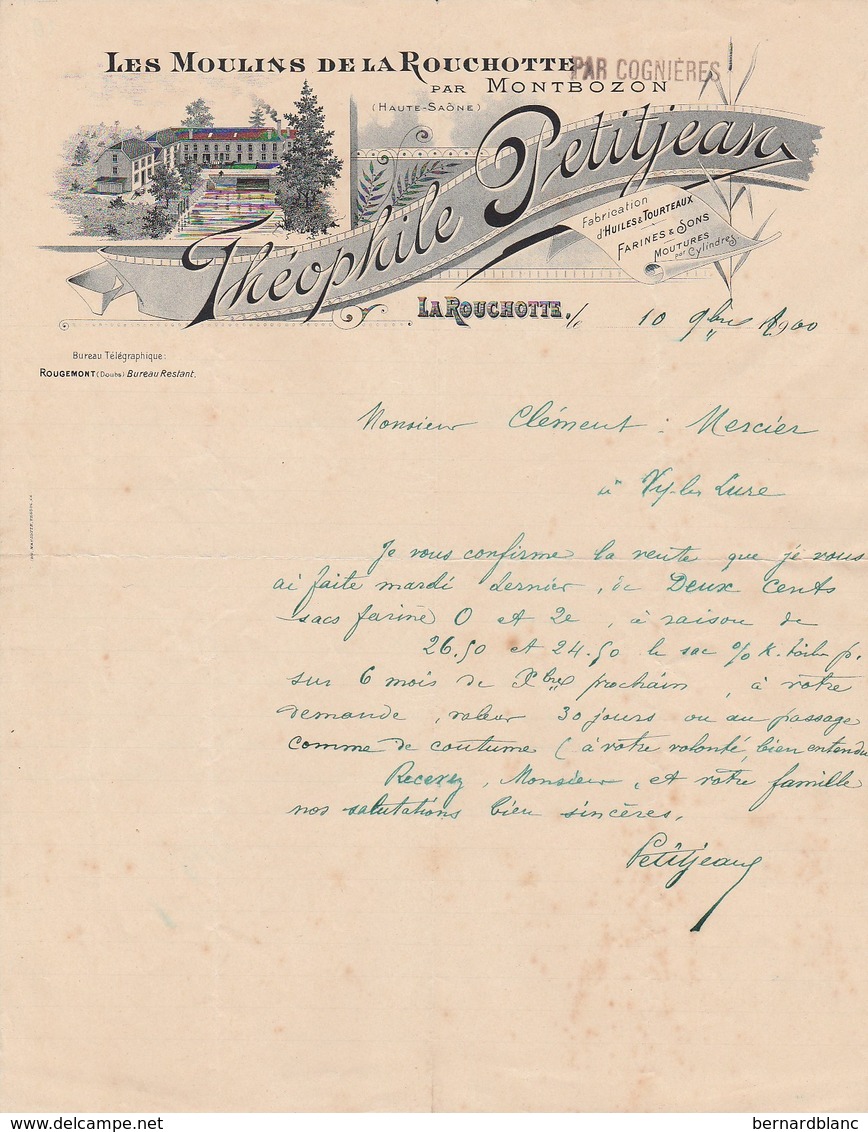 LES MOULINS DE LA ROUCHOTTE
PAR COGNIÈRES
PAR MONTBOZON
(HAUTE-SAÔNE)
Théophile Petitjean
Fabrication
d'HUILES & TOURTEAUX
FARINES & SONS
MOUTURES
par Cylindres
LA ROUCHOTTE, le 10 9bre 1900
Bureau Télégraphique:
ROUGEMONT (Doubs) Bureau Restant.
Monsieur Clément : Mercier
à Vy-les Lure
Je vous confirme la vente que je vous
ai faite mardi dernier, de Deux Cents
sacs farine 0 et 2e, à raison de
26.50 et 24.50 le sac % K. toile p.
sur 6 mois de Xbre prochain, à votre
demande, valeur 30 jours ou au passage
comme de coutume (à votre volonté, bien entendu
Recevez, Monsieur, et votre famille
nos salutations bien sincères.
Petitjean
delcampe.net
bernardblanc